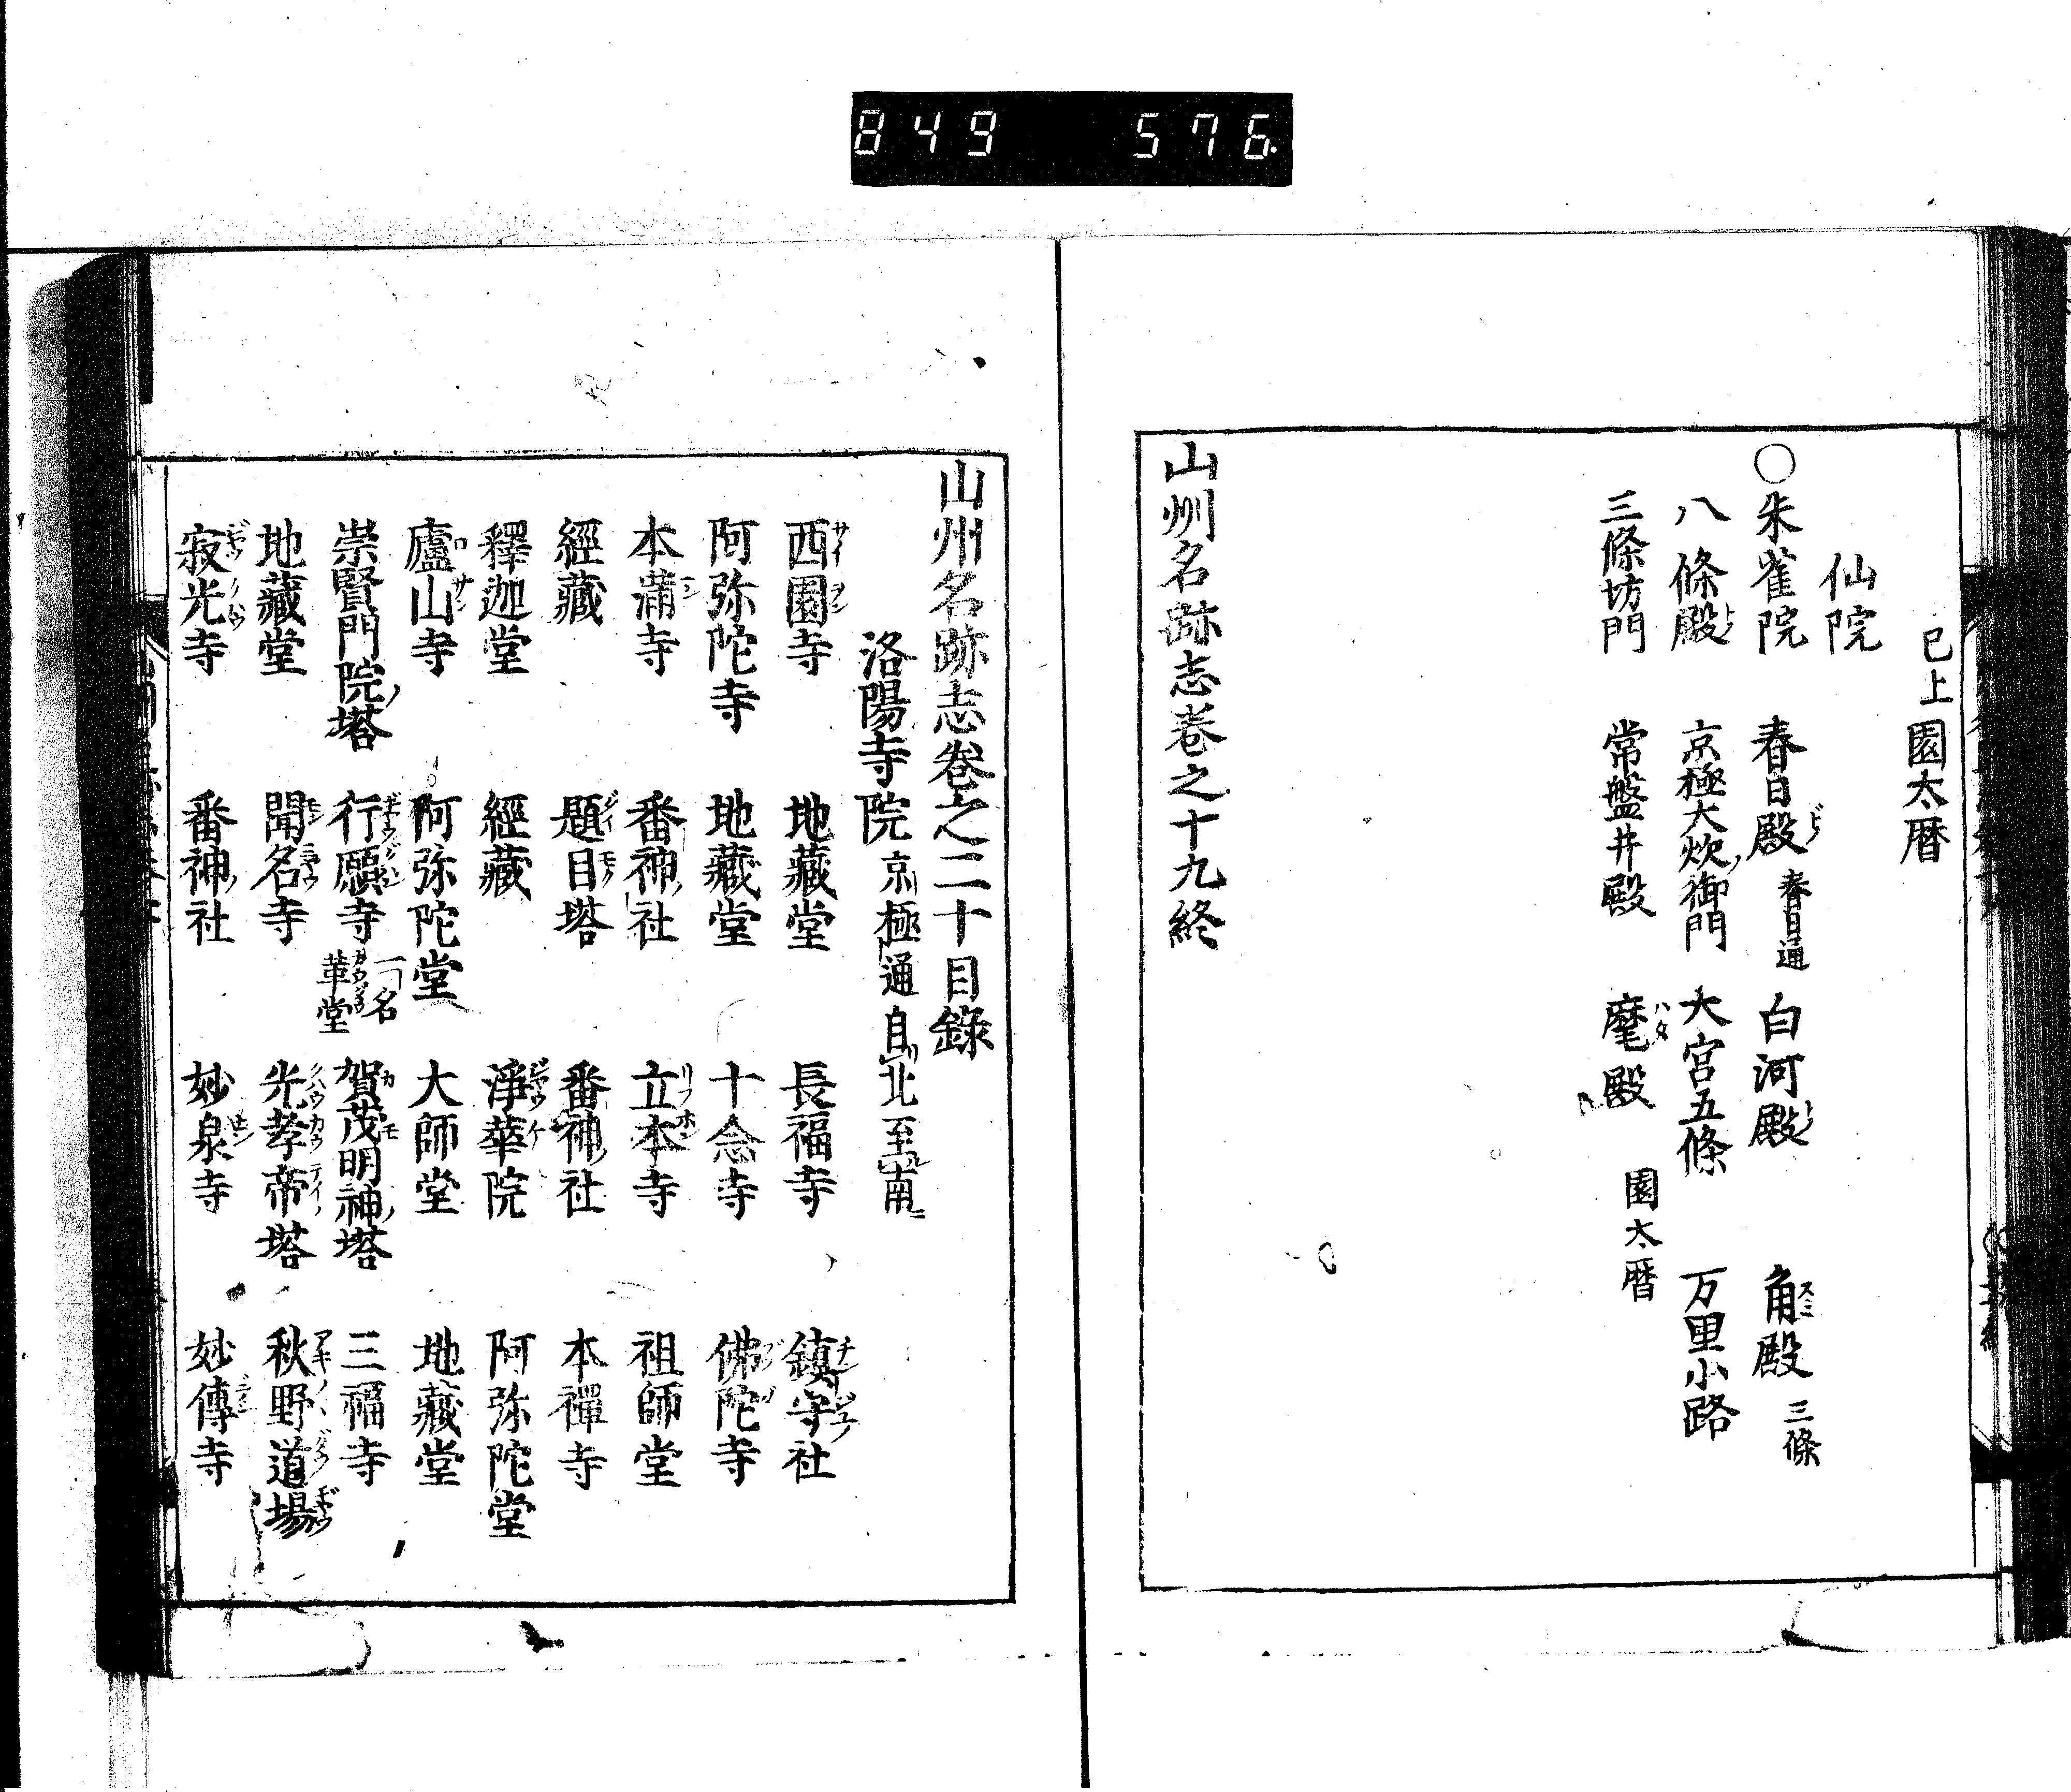 849 576
已上園太暦
仙院
○朱雀院 春日殿 春日通 白河殿 角殿 三條
八條殿 京極大炊御門 大宮五條 万里小路
三條坊門 常盤井殿 麾殿 園太暦
山州名跡志巻之十九終
山州名跡志巻之二十目錄
洛陽寺院 京極通自北至南
西園寺 地藏堂 長福寺 鎮守社
阿弥陀寺 地藏堂 十念寺 佛陀寺
本蒲寺 番神社 立本寺 祖師堂
經藏 題目塔 番神社 本禪寺
釋迦堂 經藏 淨華院 阿弥陀堂
廬山寺 阿弥陀堂 大師堂 地藏堂
崇賢門院塔 行願寺 一名革堂 賀茂明神塔 三福寺
地藏堂 聞名寺 光孝帝塔 秋野道場
寂光寺 番神社 妙泉寺 妙傳寺